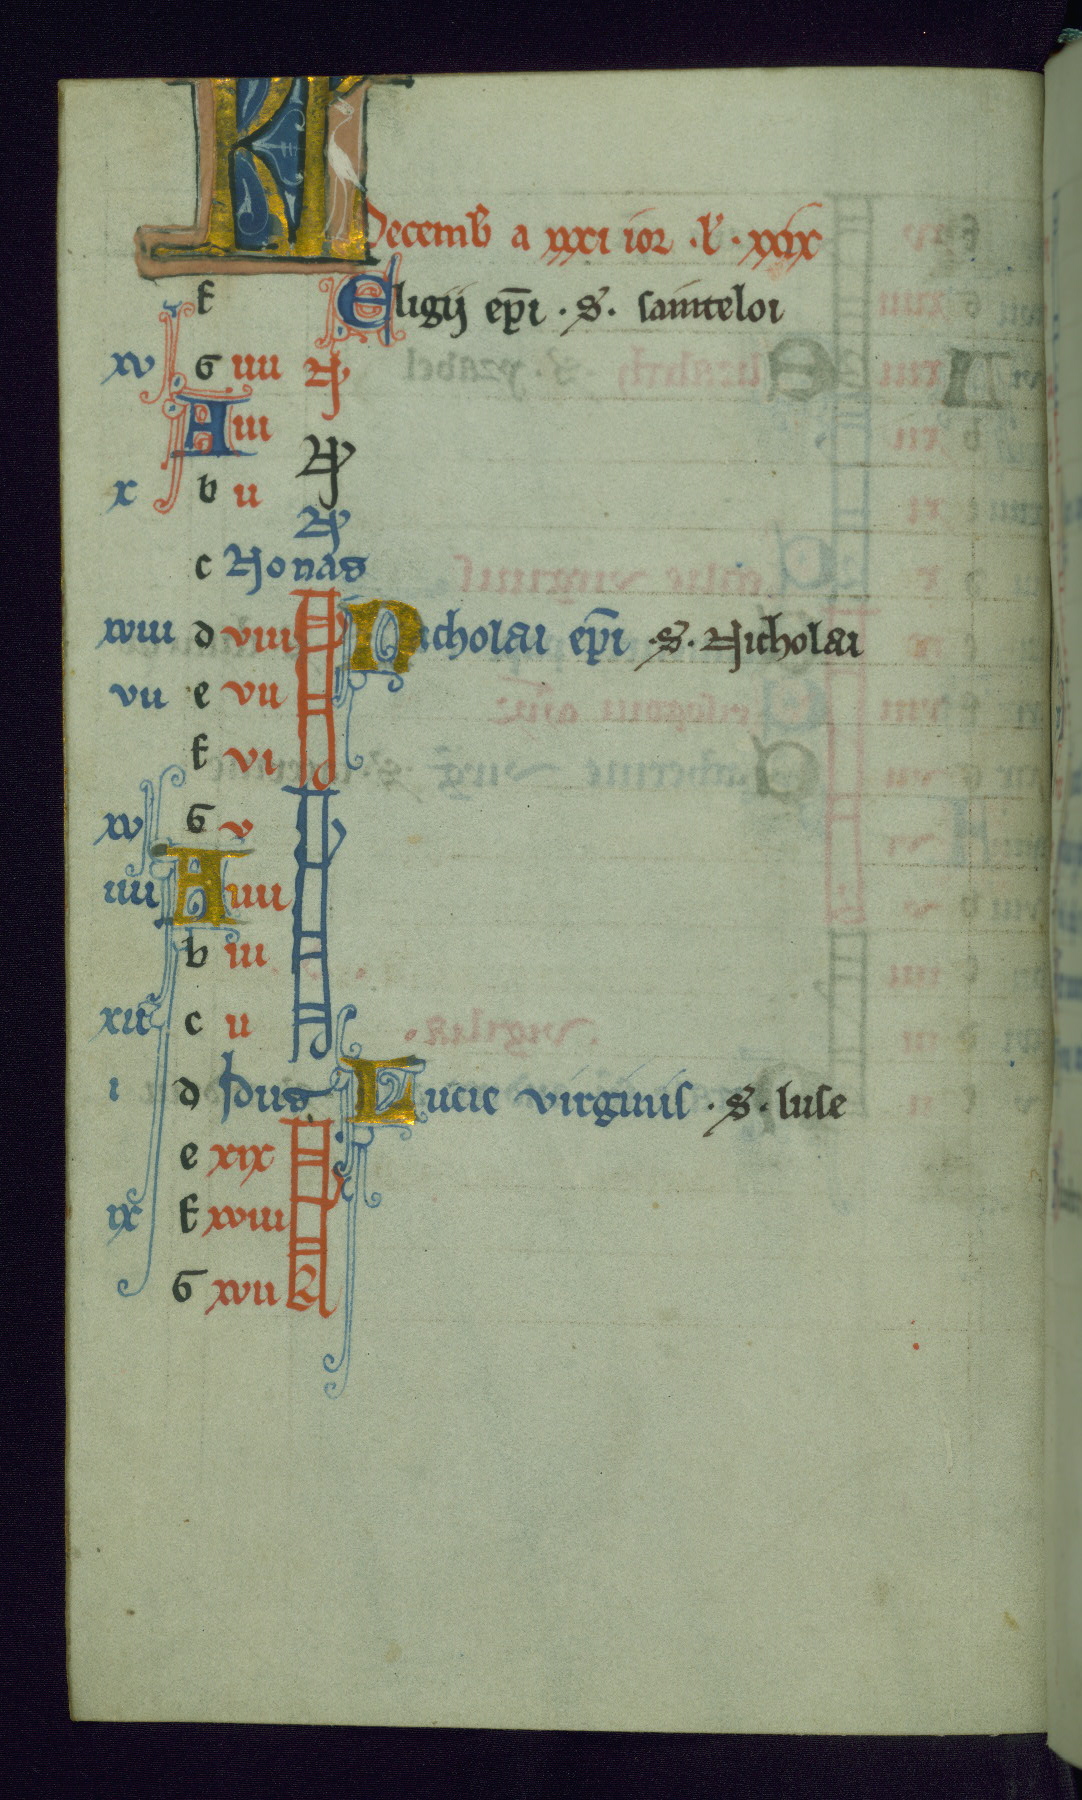 KL Decemb̄ a xxxi ior · l̄ · xxix
f Eligij ep̄i · S · sainteloi
xv G iiii N̄
A iii N̄
x b ii N̄
c Nonas
xviii d viii Nicholai ep̄i · S · Nicholai
vii e vii
f vi
xv G v
iiii A iiii
b iii
xii c ii
i d Idus Lucie virginis · S · luse
e xix
ix f xviii
G xvii